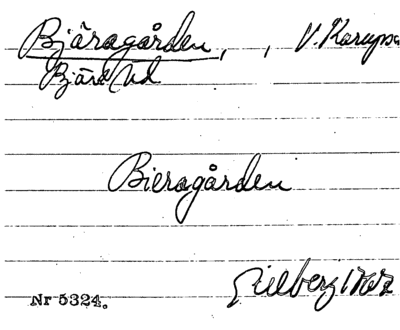 Bjäragården, , V. Karups
Bjäred
Bieragården
Gilberg 1767
Nr 5324.